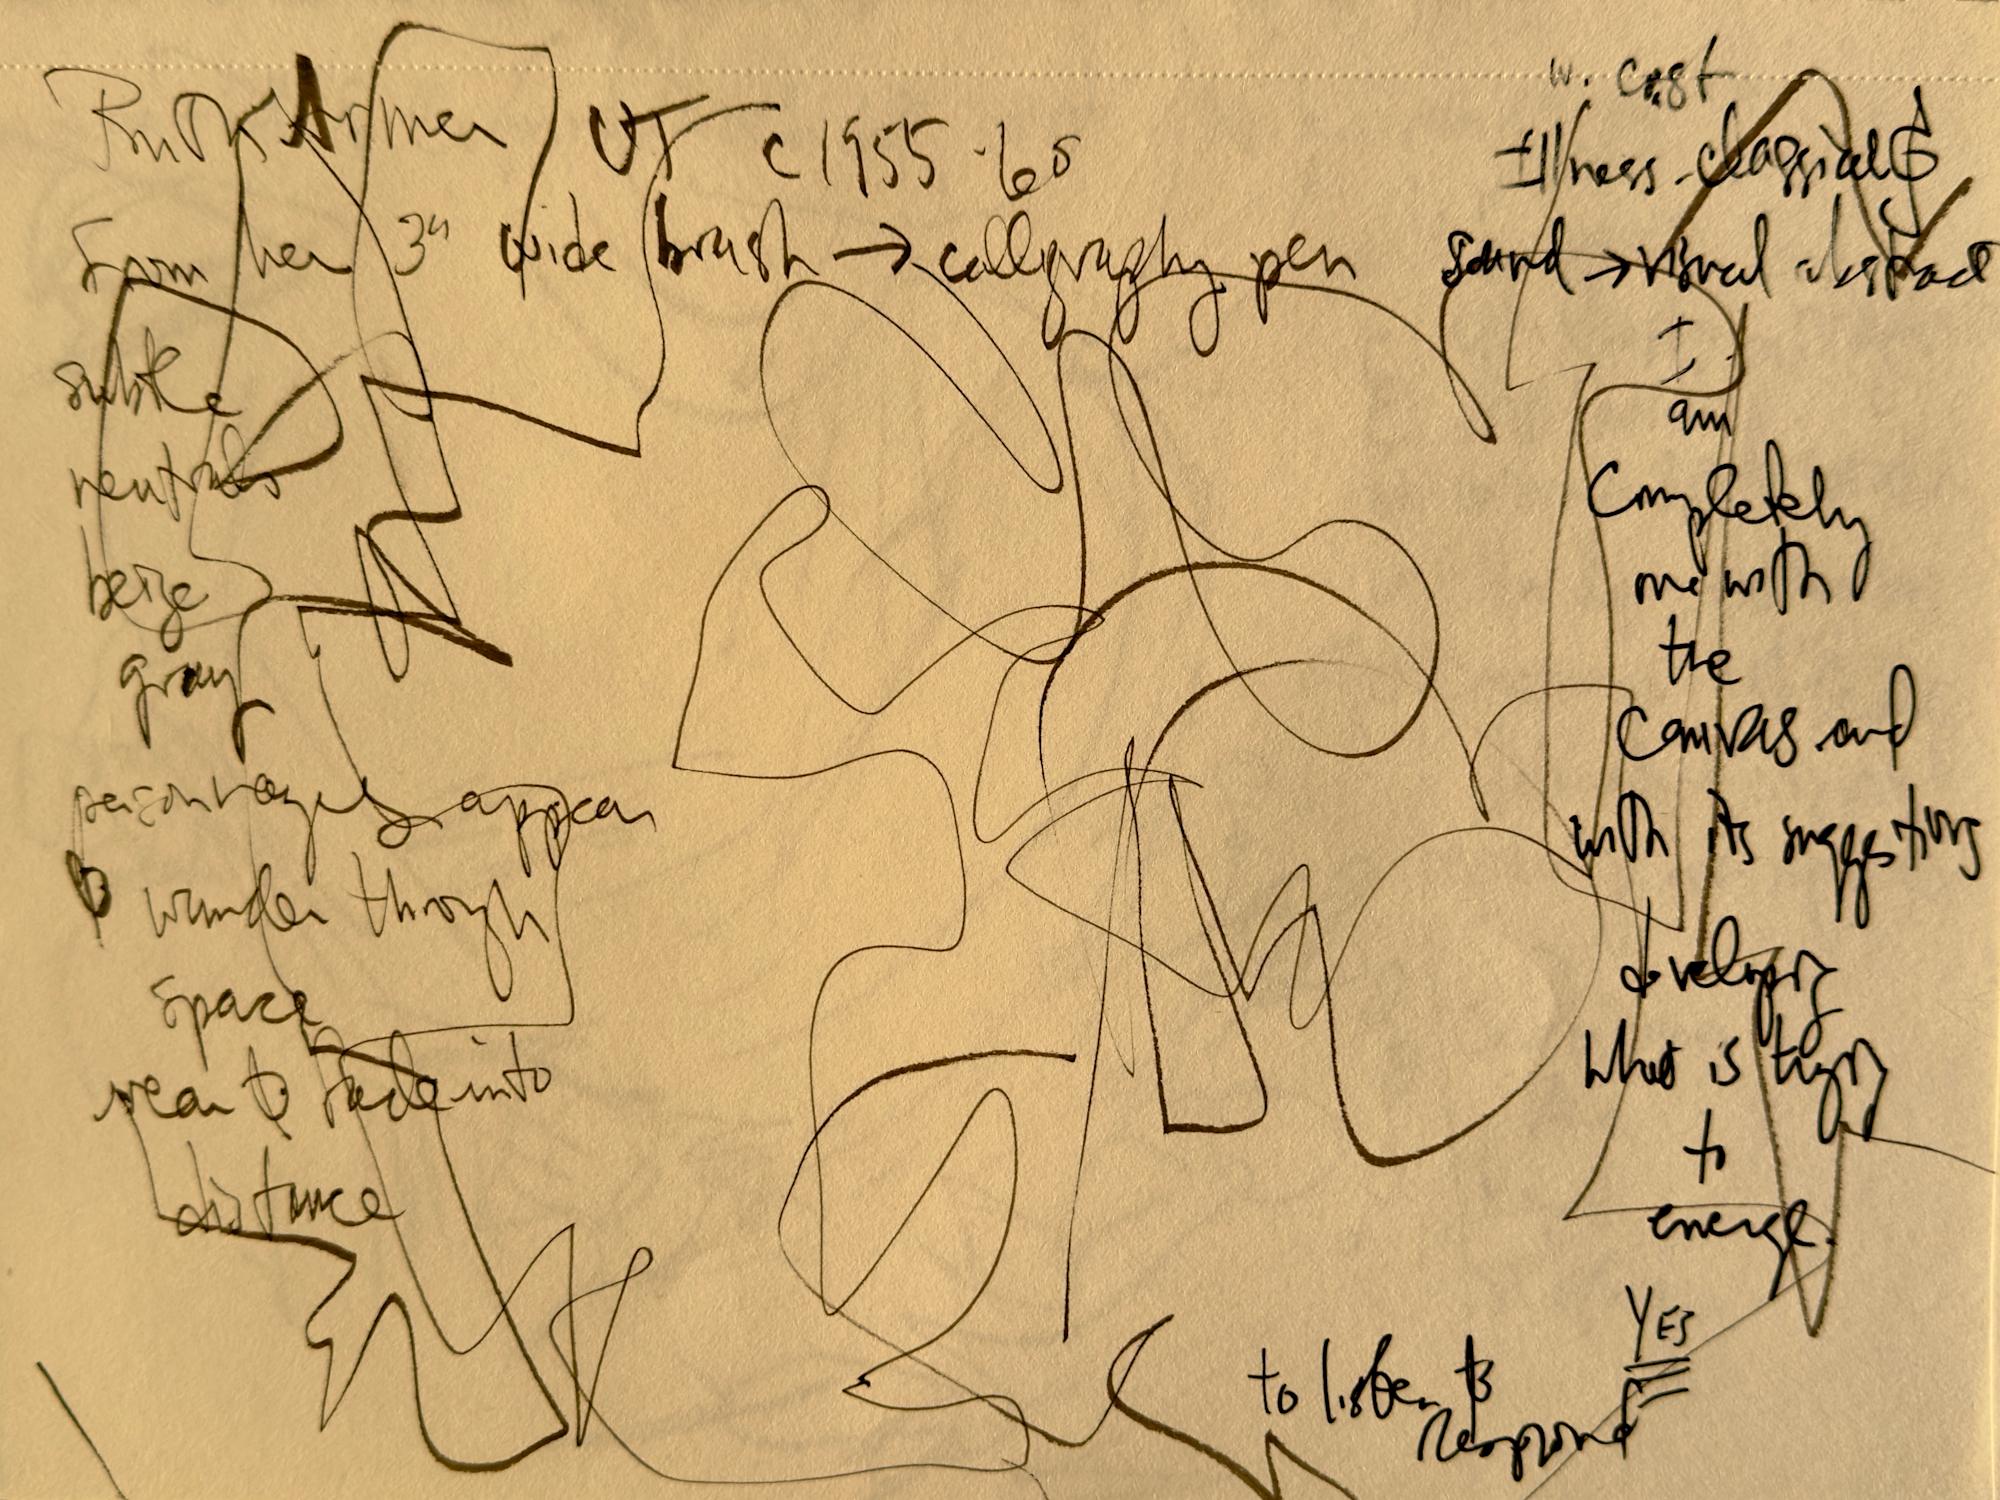 Ruth Armer UT c 1955-60
From her 3" wide brush → calligraphy pen
subtle
neutrals
beige
gray
personnages appear
wander through
space
near to fade into
distance
w. cost
Illness - classical
sound → visual abstract
I
am
Completely
one with
the
canvas and
with its suggestions
developing
what is trying
to
emerge.
YES
to listen to
respond